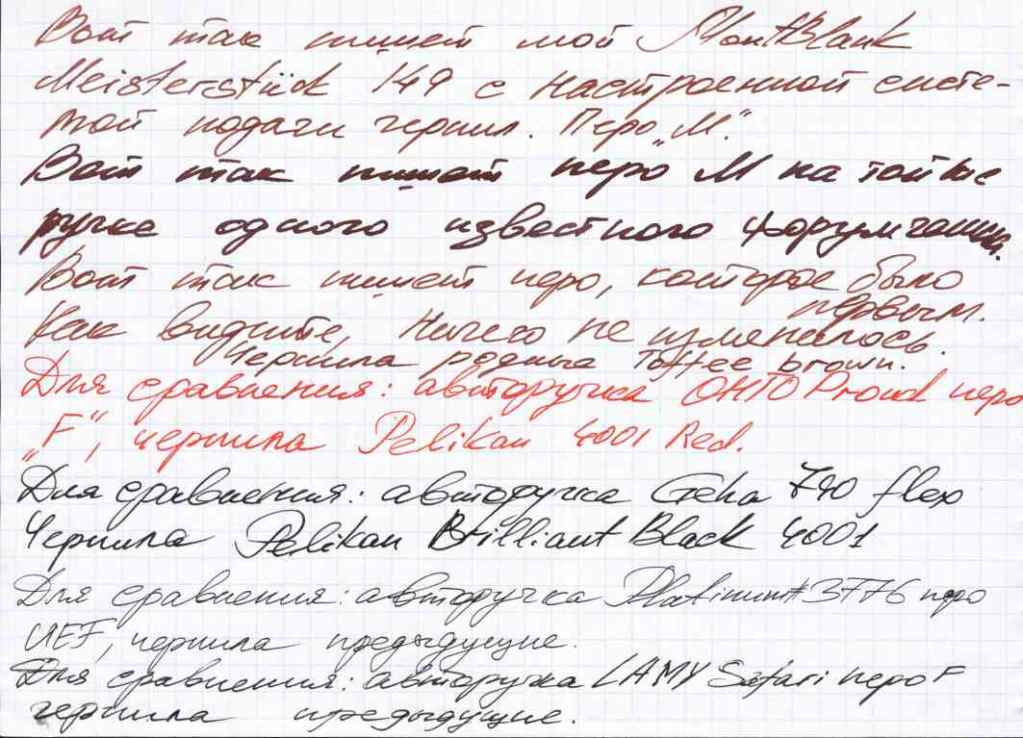 Вот так пишет мой MontBlank
Meisterstück 149 с настроенной систе-
мой подачи чернил. Перо „М."
Вот так пишет перо М на той же
ручке одного известного форумчанина.
Вот так пишет перо, которое было
первым.
Как видите, ничего не изменилось.
Чернила родные Toffee brown.
Для сравнения: авторучка OHTO Proud перо
„F", чернила Pelikan 4001 Red.
Для сравнения: авторучка Geha 790 flex
Чернила Pelikan Brilliant Black 4001
Для сравнения: авторучка Platinum #3776 перо
UEF, чернила предыдущие.
Для сравнения: авторучка LAMY Safari перо F
чернила предыдущие.